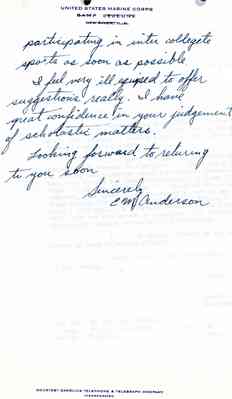 UNITED STATES MARINE CORPS
CAMP
participating in inter collegate
sports as soon as possible
I feel very ill equiped to offer
suggestions really. I have
great confidence in your judgement
of scholastic matters.
Looking forward to returing
to you soon
Sincerely
Anderson
COURTESY CAROLINA TELEPHONE & TELEGRAPH COMPANY